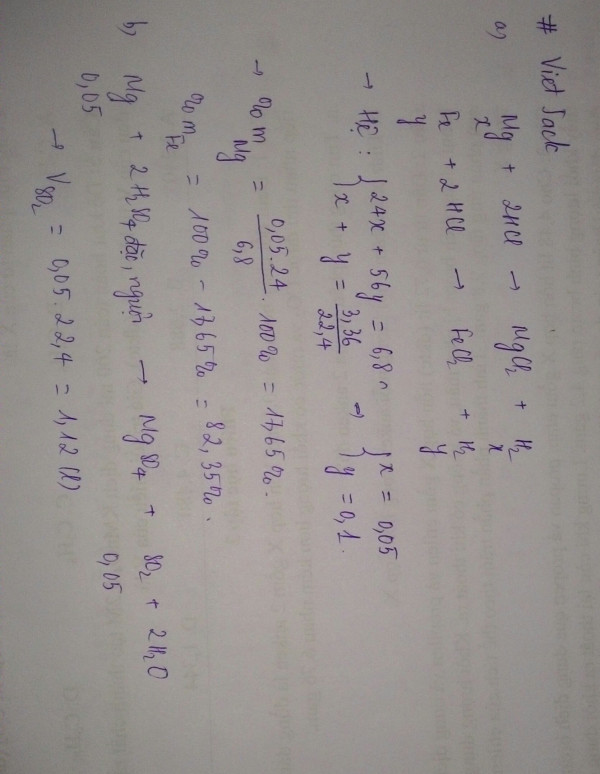 # Viet Jack
a, Mg + 2HCl → MgCl2 + H2
x x
Fe + 2HCl → FeCl2 + H2
y y
→ Hệ : { 24x + 56y = 6,8 ⇒ { x = 0,05
{ x + y = 3,36/22,4 { y = 0,1.
→ %mMg = 0,05.24/6,8 . 100% = 17,65%.
%mFe = 100% - 17,65% = 82,35%.
b, Mg + 2H2SO4 đặc, nguội → MgSO4 + SO2 + 2H2O
0,05 0,05
→ VSO2 = 0,05.22,4 = 1,12 (l)